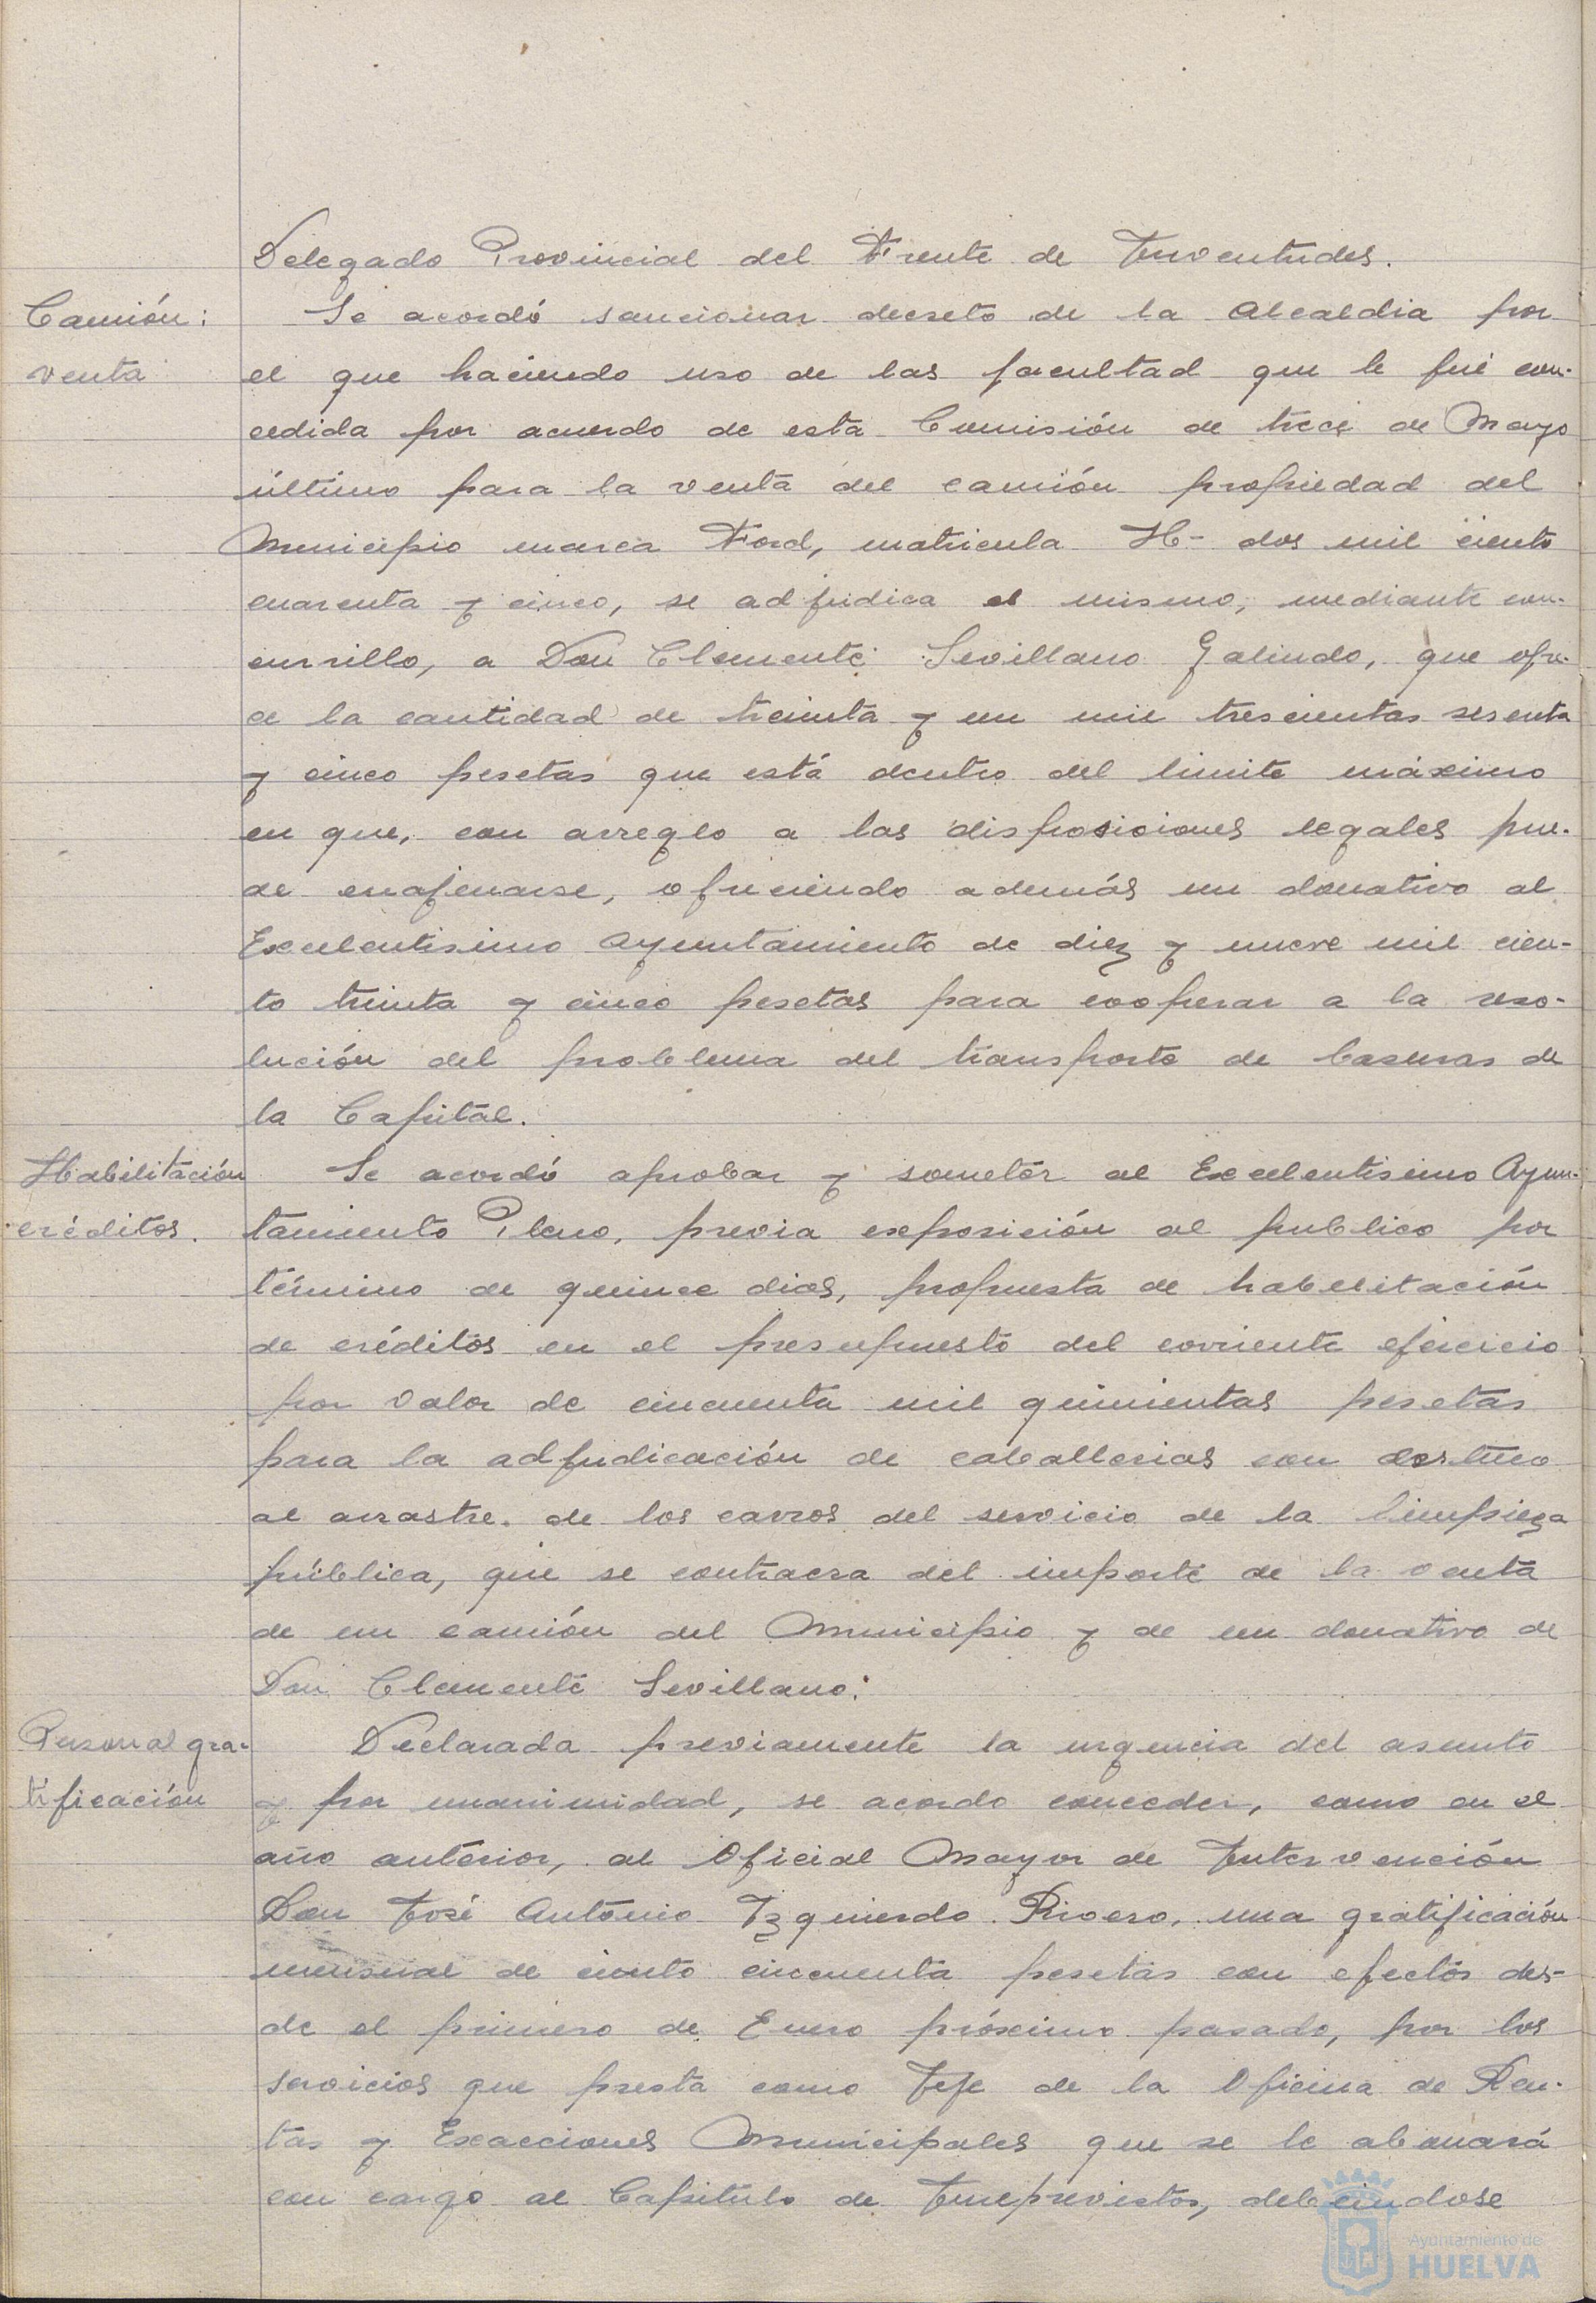 Delegado Provincial del Frente de Juventudes.
Camión: Se acordó sancionar decreto de la Alcaldia por
venta el que haciendo uso de las facultad que le fué con-
cedida por acuerdo de esta Comisión de trece de Mayo
último para la venta del camión propiedad del
Municipio marca Ford, matricula H- dos mil ciento
cuarenta y cinco, se adjudica el mismo, mediante con-
cursillo, a Don Clemente Sevillano Galindo, que ofre-
ce la cantidad de treinta y un mil trescientas sesenta
y cinco pesetas que está dentro del limite máximo
en que, con arreglo a las disposiciones legales pue-
de enajenarse, ofreciendo además un donativo al
Excelentisimo Ayuntamiento de diez y nueve mil cien-
to treinta y cinco pesetas para cooperar a la reso-
lución del problema del transporte de basuras de
la Capital.
Habilitación Se acordó aprobar y someter al Excelentisimo Ayun-
créditos. tamiento Pleno, previa exposición al publico por
término de quince dias, propuesta de habilitación
de créditos en el presupuesto del corriente ejercicio
por valor de cincuenta mil quinientas pesetas
para la adjudicación de caballerias con destino
al arrastre de los carros del servicio de la limpieza
pública, que se contraera del importe de la venta
de un camión del Municipio y de un donativo de
Don Clemente Sevillano.
Personal gra- Declarada previamente la urgencia del asunto
tificación y por unanimidad, se acordo conceder, como en el
año anterior, al Oficial Mayor de Intervención
Don José Antonio Izquierdo Rivero, una gratificación
mensual de ciento cincuenta pesetas con efectos des-
de el primero de Enero próximo pasado, por los
servicios que presta como Jefe de la Oficina de Ren-
tas y Exacciones Municipales que se le abonará
con cargo al Capitulo de Imprevistos, debiendose
Ayuntamiento de
HUELVA